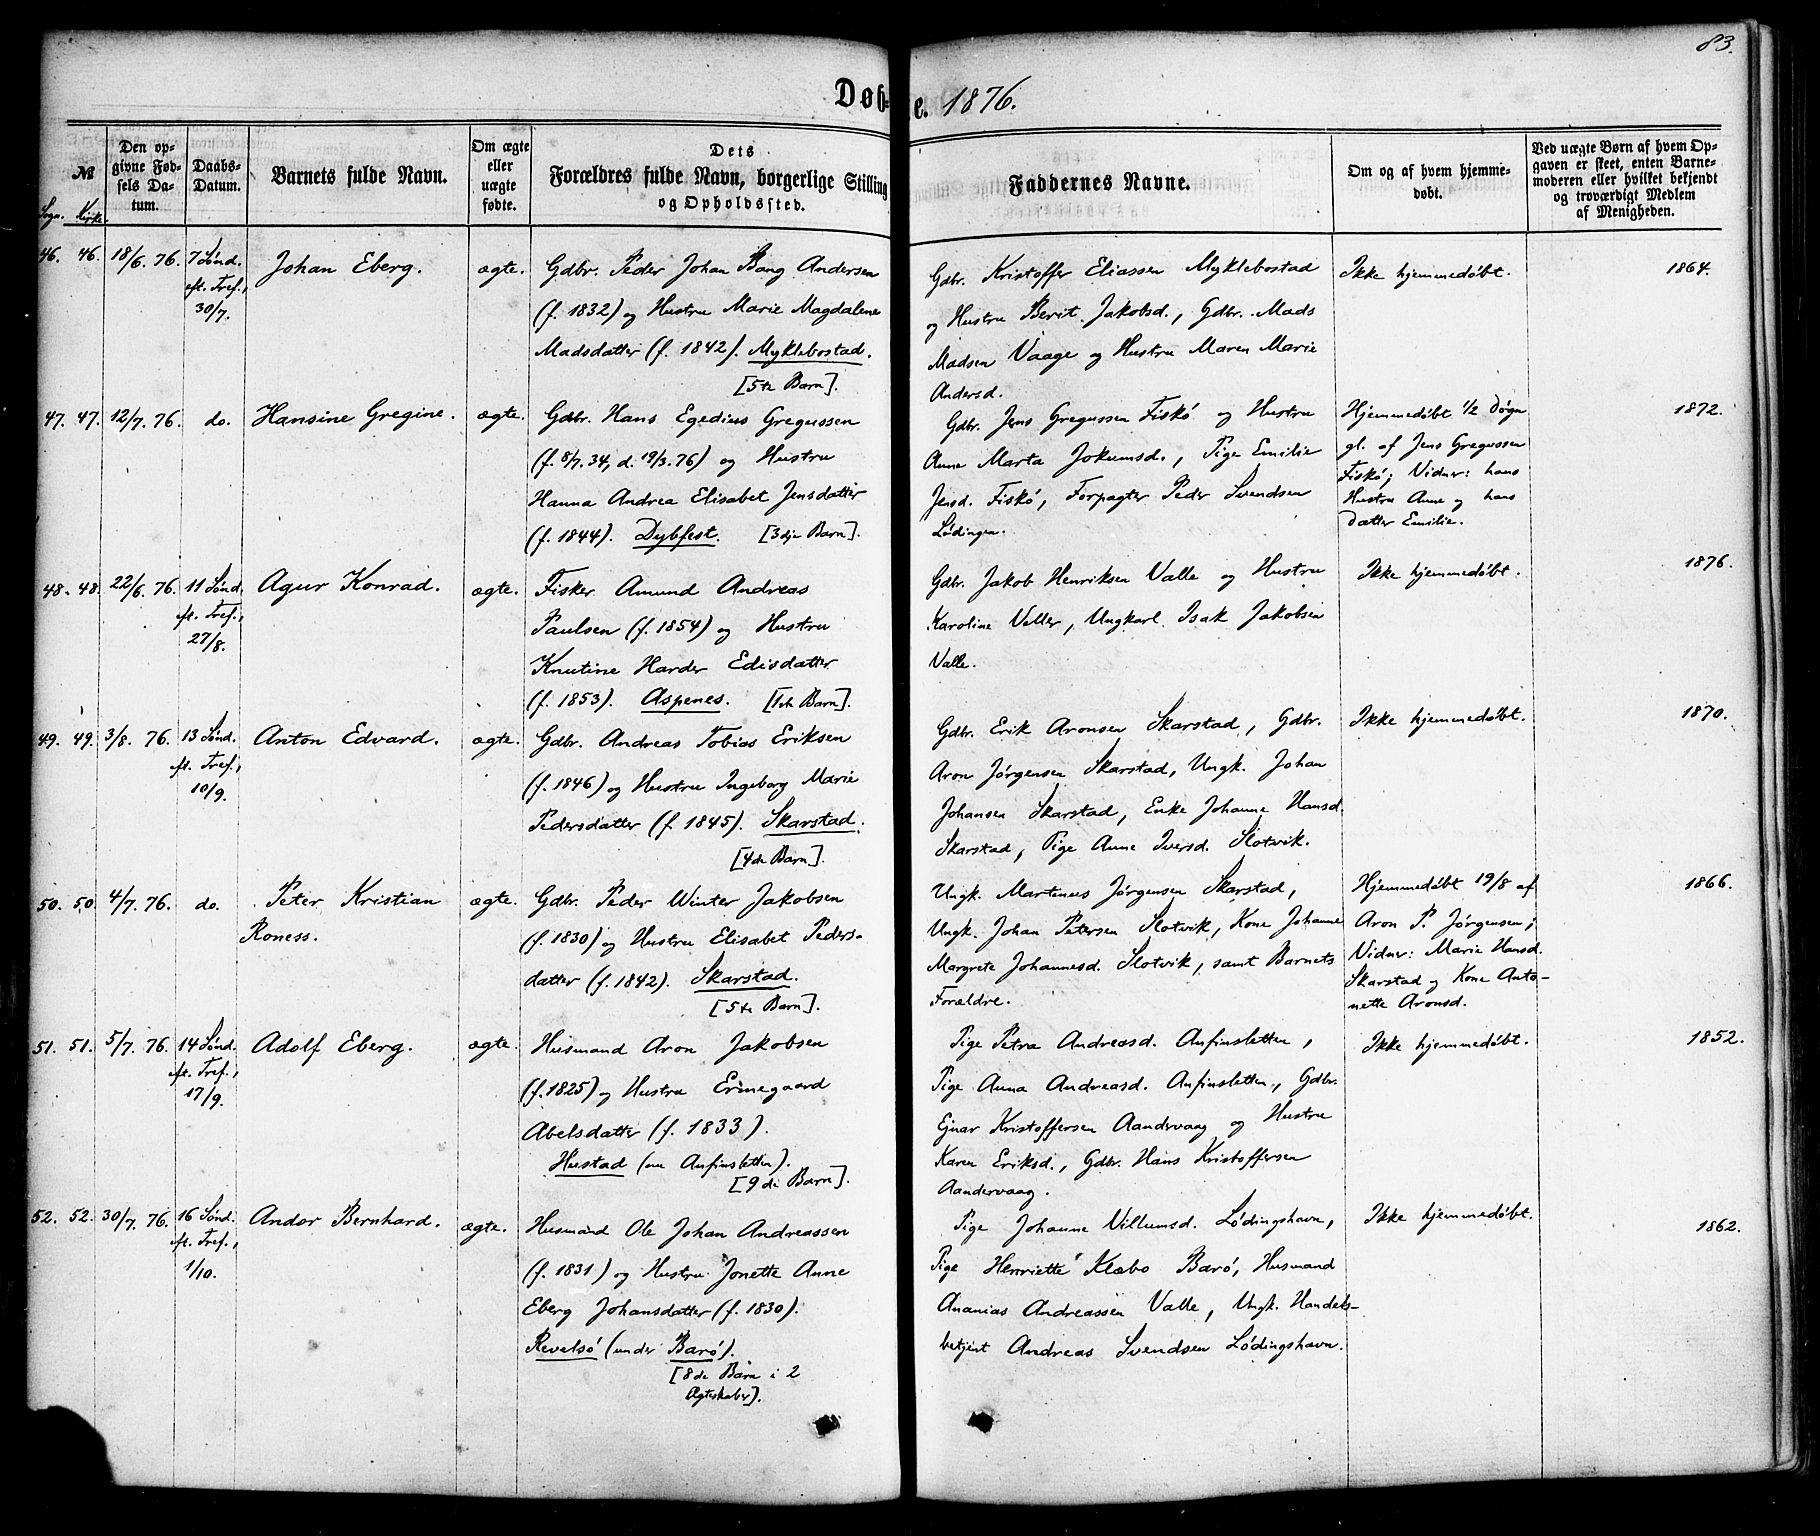 83.
Døb-e. 1876.
№
Sogn. Kirke.
Den op-
givne Fød-
sels Da-
tum.
Daabs-
Datum.
Barnets fulde Navn.
Om ægte
eller
uægte
fødte.
Dets
Forældres fulde Navn, borgerlige Stilling
og Opholdssted.
Faddernes Navne.
Om og af hvem hjemme-
døbt.
Ved uægte Børn af hvem Op-
gaven er skeet, enten Barne-
moderen eller hvilket bekjendt
og troværdigt Medlem
af Menigheden.
46. 46. 18/6. 76.
7 Sønd.
eft. Tref.,
30/7.
Johan Eberg.
ægte.
Gdbr. Peder Johan Bang Andersen
(f. 1832) og Hustru Marie Magdalene
Madsdatter (f. 1842). Myklebostad.
[5te Barn].
Gdbr. Kristoffer Eliassen Myklebostad
og Hustru Berit Jakobsd., Gdbr. Mads
Madsen Vaage og Hustru Maren Marie
Andersd.
Ikke hjemmedøbt.
1864.
47. 47. 12/7. 76.
do.
Hansine Gregine.
ægte.
Gdbr. Hans Egedius Gregussen
(f. 8/7. 34, d. 19/3. 76) og Hustru
Hanna Andrea Elisabet Jensdatter
(f. 1844). Dybfest. [3dje Barn].
Gdbr. Jens Gregussen Fiskø og Hustru
Anne Marta Jokumsd., Pige Emilie
Jensd. Fiskø, Forpagter Peder Svendsen
Lødingen.
Hjemmedøbt 1/2 Døgn
gl. af Jens Gregussen
Fiskø; Vidner: hans
Hustru Anne og hans
Datter Emilie.
1872.
48. 48. 22/6. 76.
11 Sønd.
eft. Tref.,
27/8.
Agur Konrad.
ægte.
Fisker Amund Andreas
Paulsen (f. 1854) og Hustru
Knutine Harder Edisdatter
(f. 1853). Aspenes. [1ste Barn].
Gdbr. Jakob Henriksen Valle og Hustru
Karoline Valler, Ungkarl Isak Jakobsen
Valle.
Ikke hjemmedøbt.
1876.
49. 49. 3/8. 76.
13 Sønd.
eft. Tref.,
10/9.
Anton Edvard.
ægte.
Gdbr. Andreas Tobias Eriksen
(f. 1846) og Hustru Ingeborg Marie
Pedersdatter (f. 1845). Skarstad.
[4de Barn].
Gdbr. Erik Aronsen Skarstad, Gdbr.
Aron Jørgensen Skarstad, Ungk. Johan
Johansen Skarstad, Enke Johanne Hansd.
Skarstad, Pige Anne Iversd. Slotvik.
Ikke hjemmedøbt.
1870.
50. 50. 4/7. 76.
do.
Peter Kristian
Roness.
ægte.
Gdbr. Peder Winter Jakobsen
(f. 1830) og Hustru Elisabet Peders-
datter (f. 1842). Skarstad.
[5te Barn].
Ungk. Martenus Jørgensen Skarstad,
Ungk. Johan Petersen Slotvik, Kone Johanne
Margrete Johannesd. Slotvik, samt Barnets
Forældre.
Hjemmedøbt 19/8 af
Aron P. Jørgensen;
Vidner: Marie Hansd.
Skarstad og Kone Anto-
nette Aronsd.
1866.
51. 51. 5/7. 76.
14 Sønd.
eft. Tref.,
17/9.
Adolf Eberg.
ægte.
Husmand Aron Jakobsen
(f. 1825) og Hustru Ermegaard
Abelsdatter (f. 1833).
Hustad (nu Anfinsletten).
[9de Barn].
Pige Petra Andreasd. Anfinsletten,
Pige Anna Andreasd. Anfinsletten, Gdbr.
Ejnar Kristoffersen Aandervaag og Hustru
Karen Eriksd., Gdbr. Hans Kristoffersen
Aandervaag.
Ikke hjemmedøbt.
1852.
52. 52. 30/7. 76.
16 Sønd.
eft. Tref.,
1/10.
Andor Bernhard.
ægte.
Husmand Ole Johan Andreassen
(f. 1831) og Hustru Jonette Anne
Eberg Johansdatter (f. 1830).
Revelsø (under Barø).
[8de Barn i 2
Ægteskaber].
Pige Johanne Villumsd. Lødingshavn,
Pige Henriette Klæbo Barø, Husmand
Ananias Andreassen Valle, Ungk. Handels-
betjent Andreas Svendsen Lødingshavn.
Ikke hjemmedøbt.
1862.